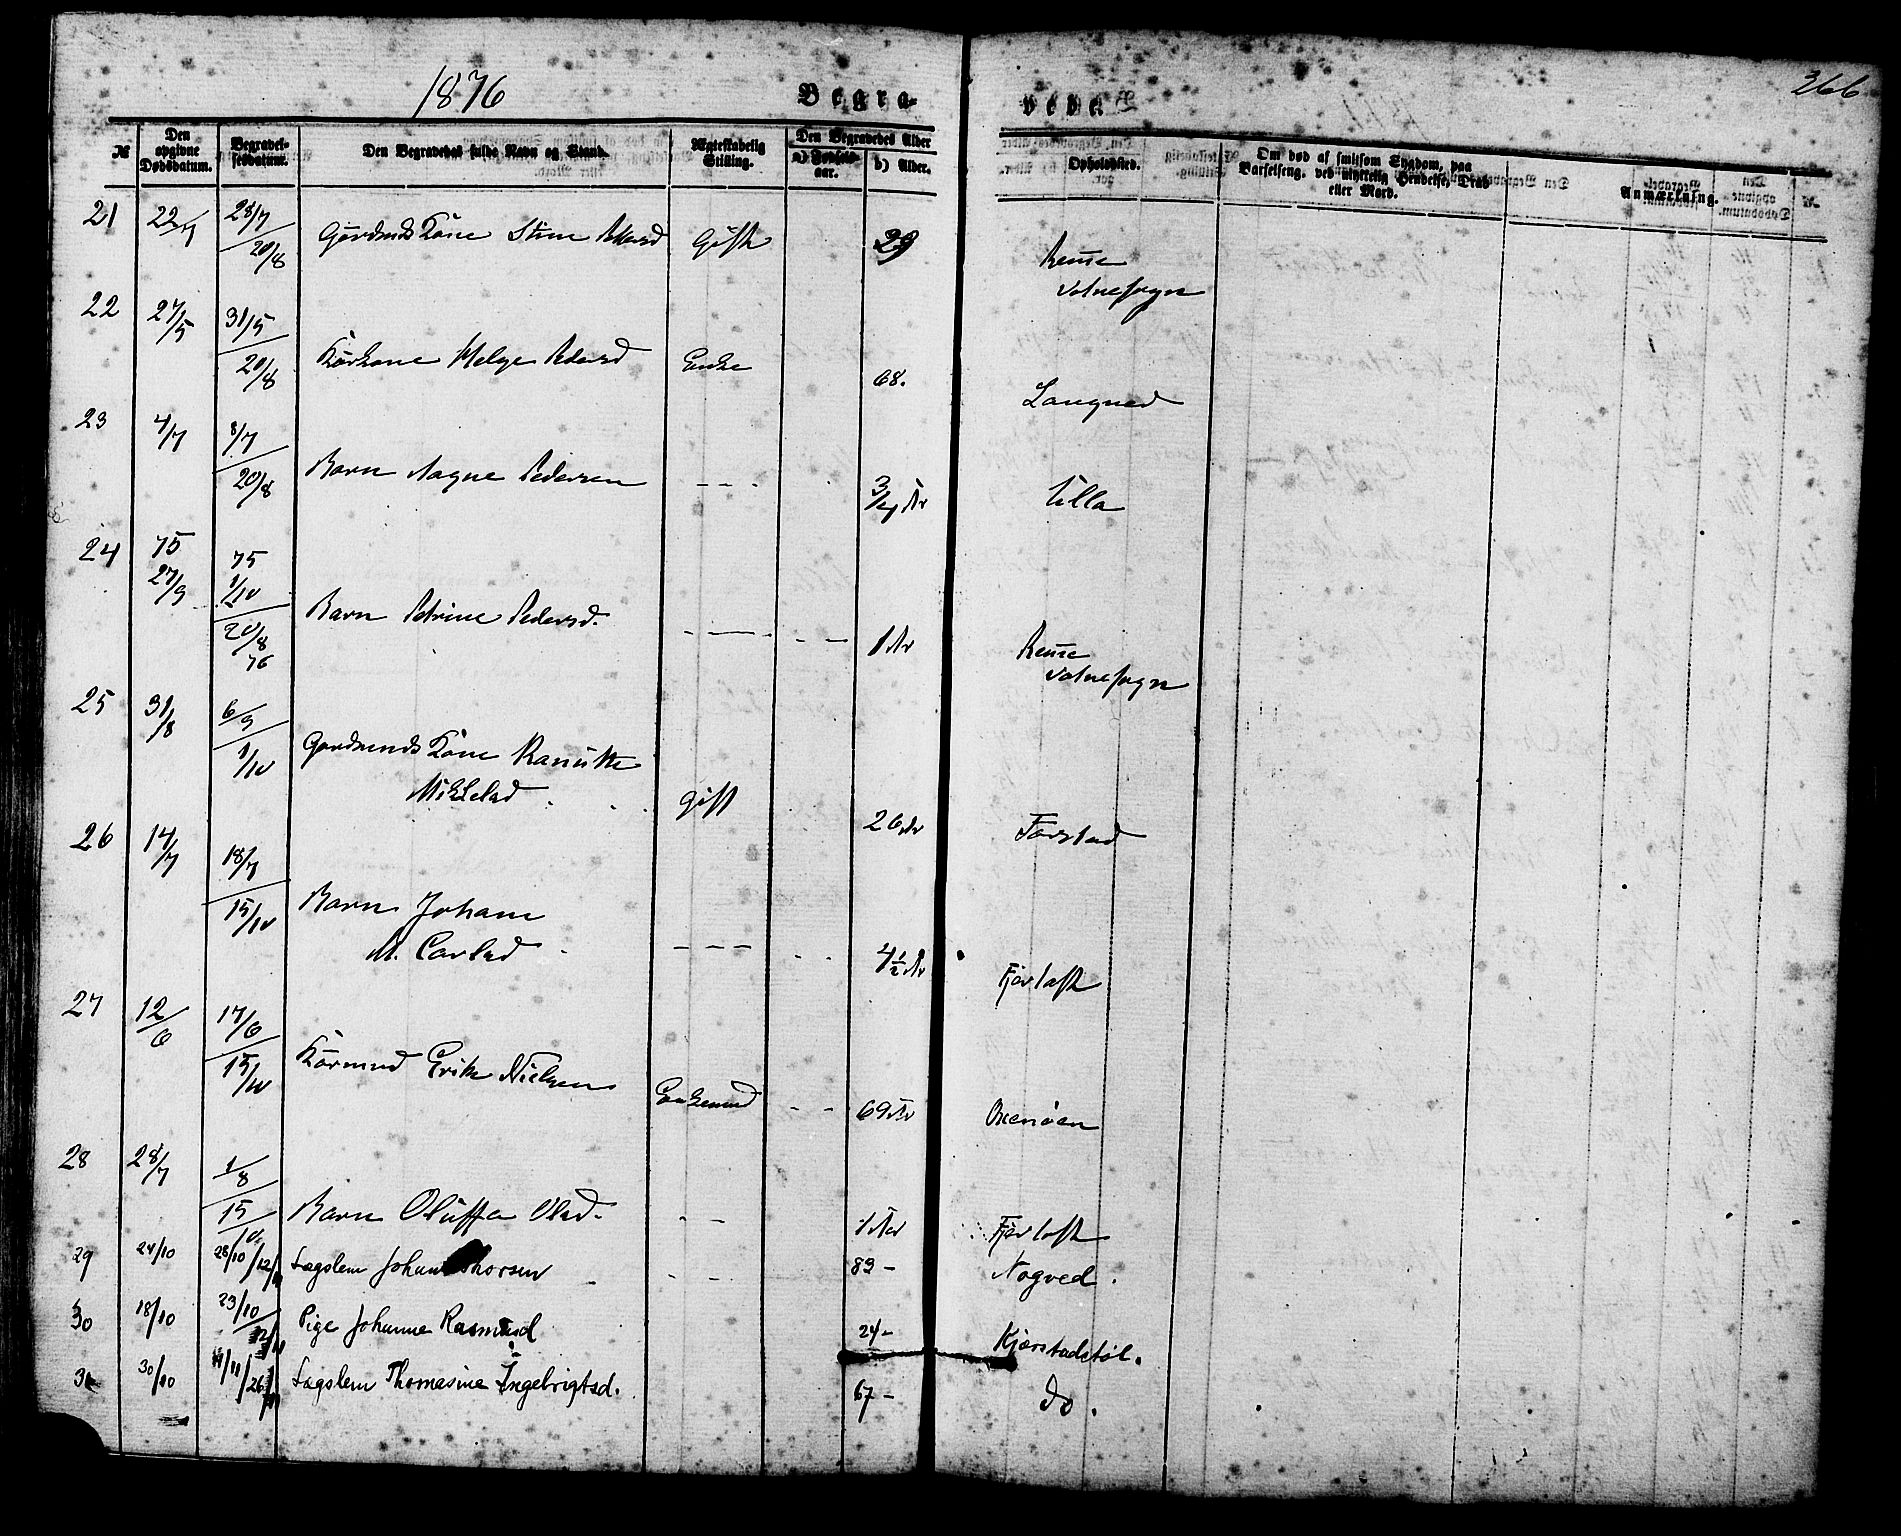 1876
Begra-
vede.
366
№
Den opgivne Dødsdatum.
Begravelsesdatum.
Den Begravedes fulde Navn og Stand.
Ægteskabelig Stilling.
Den Begravedes Alder
a) Fødselsaar.
b) Alder.
Opholdssted.
Om død af smitsom Sygdom, paa Barselseng, ved ulykkelig Hændelse, Drab eller Mord.
Anmærkning.
21 28/7 20/8 Gårdmds Kone Stine Pedersd Gift 29
Volnesogn
22 27/5 31/5 20/8 Kårkone Helge Pedersd Enke 68. Langned
23 4/7 8/7 20/8 Barn Aagne Pedersen - - - 3/4 År Ulla
24 75 27/9 75 1/10 20/8 76 Barn Petrine Pedersd. 1 År
Volnesogn
25 31/8 6/9 1/10 Gardmands Kone
gift 26 År Farstad
26 14/7 18/7 15/10 Barn Johane
M. Carlsd - - - 4 1/2 År Fjørtoft
27 12/6 17/6 15/10 Kårmnd Erik Nielsen Enkemnd - - 69 År Oxenöen
28 28/7 1/8 15/10 Barn Oluffa Olsd. - - 1 År Fjørtoft
29 24/10 28/10 12/11 Lægslem Johan Thorsen - - 83 - Nogved.
30 18/10 23/10 12/11 Pige Johanne Rasmusd 24 - Kjørstadstøl.
31 30/10 26/11 Lægslem Thomasine Ingebrigtsd. 67 - do.